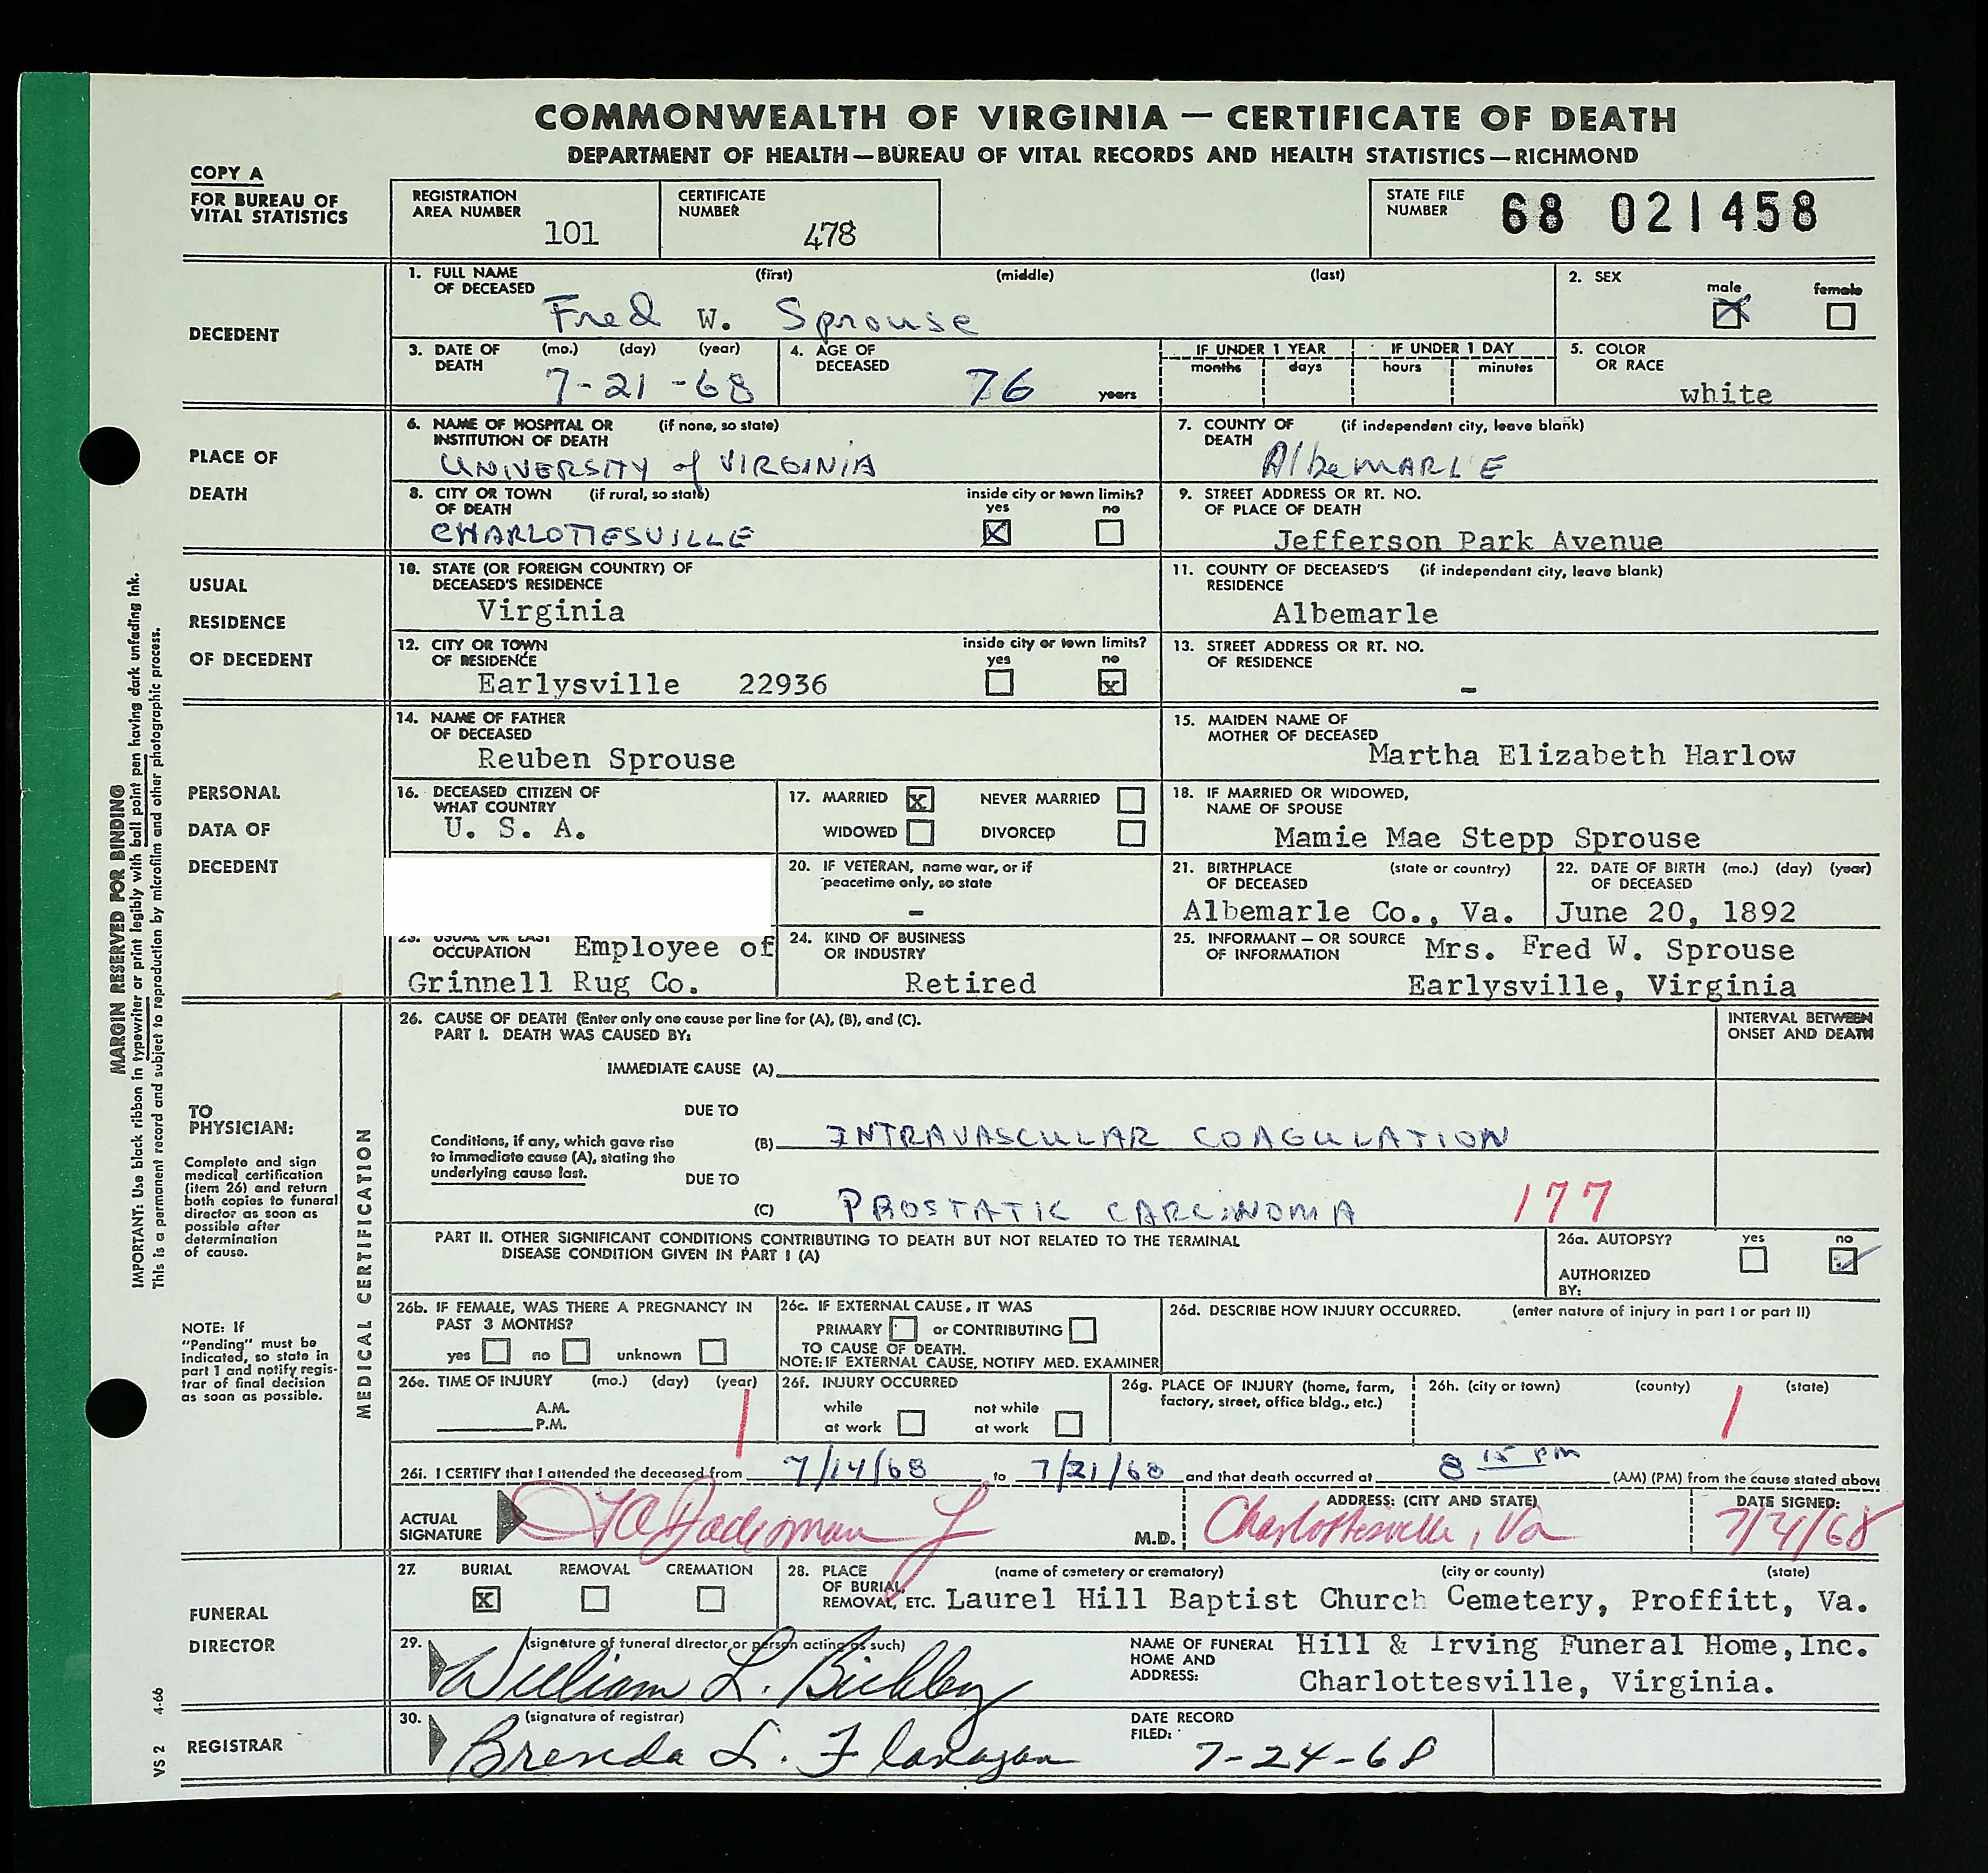 COMMONWEALTH OF VIRGINIA — CERTIFICATE OF DEATH
DEPARTMENT OF HEALTH — BUREAU OF VITAL RECORDS AND HEALTH STATISTICS — RICHMOND
COPY A
FOR BUREAU OF
VITAL STATISTICS
REGISTRATION
AREA NUMBER
101
CERTIFICATE
NUMBER
478
STATE FILE
NUMBER
68 021458
DECEDENT
1. FULL NAME OF DECEASED (first) (middle) (last)
Fred W. Sprouse
2. SEX
male ☒ female ☐
3. DATE OF DEATH (mo.) (day) (year)
7-21-68
4. AGE OF DECEASED
76 years
IF UNDER 1 YEAR
months days
IF UNDER 1 DAY
hours minutes
5. COLOR OR RACE
white
PLACE OF
DEATH
6. NAME OF HOSPITAL OR INSTITUTION OF DEATH (if none, so state)
UNIVERSITY of VIRGINIA
7. COUNTY OF DEATH (if independent city, leave blank)
AlbeMARLE
8. CITY OR TOWN OF DEATH (if rural, so state)
CHARLOTTESVILLE
inside city or town limits?
yes ☒ no ☐
9. STREET ADDRESS OR RT. NO. OF PLACE OF DEATH
Jefferson Park Avenue
USUAL
RESIDENCE
OF DECEDENT
10. STATE (OR FOREIGN COUNTRY) OF DECEASED'S RESIDENCE
Virginia
11. COUNTY OF DECEASED'S RESIDENCE (if independent city, leave blank)
Albemarle
12. CITY OR TOWN OF RESIDENCE
Earlysville 22936
inside city or town limits?
yes ☐ no ☒
13. STREET ADDRESS OR RT. NO. OF RESIDENCE
-
PERSONAL
DATA OF
DECEDENT
14. NAME OF FATHER OF DECEASED
Reuben Sprouse
15. MAIDEN NAME OF MOTHER OF DECEASED
Martha Elizabeth Harlow
16. DECEASED CITIZEN OF WHAT COUNTRY
U. S. A.
17. MARRIED ☒ NEVER MARRIED ☐
WIDOWED ☐ DIVORCED ☐
18. IF MARRIED OR WIDOWED, NAME OF SPOUSE
Mamie Mae Stepp Sprouse
20. IF VETERAN, name war, or if peacetime only, so state
-
21. BIRTHPLACE OF DECEASED (state or country)
Albemarle Co., Va.
22. DATE OF BIRTH OF DECEASED (mo.) (day) (year)
June 20, 1892
23. USUAL OR LAST OCCUPATION
Employee of
Grinnell Rug Co.
24. KIND OF BUSINESS OR INDUSTRY
Retired
25. INFORMANT — OR SOURCE OF INFORMATION
Mrs. Fred W. Sprouse
Earlysville, Virginia
MARGIN RESERVED FOR BINDING
IMPORTANT: Use black ribbon in typewriter or print legibly with ball point pen having dark unfading ink.
This is a permanent record and subject to reproduction by microfilm and other photographic process.
TO
PHYSICIAN:
Complete and sign
medical certification
(item 26) and return
both copies to funeral
director as soon as
possible after
determination
of cause.
NOTE: If
"Pending" must be
indicated, so state in
part 1 and notify regis-
trar of final decision
as soon as possible.
MEDICAL CERTIFICATION
26. CAUSE OF DEATH (Enter only one cause per line for (A), (B), and (C).
PART I. DEATH WAS CAUSED BY:
INTERVAL BETWEEN
ONSET AND DEATH
IMMEDIATE CAUSE (A)
DUE TO
Conditions, if any, which gave rise
to immediate cause (A), stating the
underlying cause last.
(B) INTRAVASCULAR COAGULATION
DUE TO
(C) PROSTATIC CARCINOMA 177
PART II. OTHER SIGNIFICANT CONDITIONS CONTRIBUTING TO DEATH BUT NOT RELATED TO THE TERMINAL
DISEASE CONDITION GIVEN IN PART I (A)
26a. AUTOPSY? yes ☐ no ☑
AUTHORIZED
BY:
26b. IF FEMALE, WAS THERE A PREGNANCY IN
PAST 3 MONTHS?
yes ☐ no ☐ unknown ☐
26c. IF EXTERNAL CAUSE, IT WAS
PRIMARY ☐ or CONTRIBUTING ☐
TO CAUSE OF DEATH.
NOTE: IF EXTERNAL CAUSE, NOTIFY MED. EXAMINER
26d. DESCRIBE HOW INJURY OCCURRED. (enter nature of injury in part I or part II)
26e. TIME OF INJURY (mo.) (day) (year)
A.M.
P.M.
1
26f. INJURY OCCURRED
while at work ☐ not while at work ☐
26g. PLACE OF INJURY (home, farm,
factory, street, office bldg., etc.)
26h. (city or town) (county) (state)
1
26i. I CERTIFY that I attended the deceased from 7/14/68 to 7/21/68 and that death occurred at 8 15 PM (AM) (PM) from the cause stated above
ACTUAL
SIGNATURE
M.D.
ADDRESS: (CITY AND STATE)
Charlottesville, Va
DATE SIGNED:
FUNERAL
DIRECTOR
27. BURIAL ☒ REMOVAL ☐ CREMATION ☐
28. PLACE OF BURIAL, REMOVAL, ETC. (name of cemetery or crematory) (city or county) (state)
Laurel Hill Baptist Church Cemetery, Proffitt, Va.
29. (signature of funeral director or person acting as such)
William L.
NAME OF FUNERAL HOME AND ADDRESS:
Hill & Irving Funeral Home, Inc.
Charlottesville, Virginia.
REGISTRAR
30. (signature of registrar)
Brenda L. Flanagan
DATE RECORD
FILED:
7-24-68
VS 2 4-66